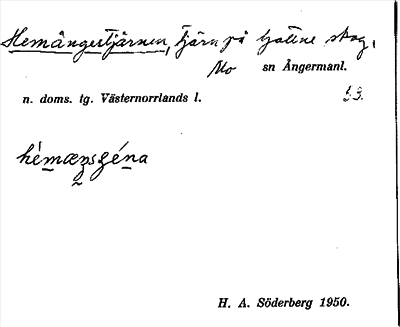 Hemångestjärnen, tjärn på Gottne skog,
Mo sn Ångermanl.
n. doms. tg. Västernorrlands l.
H. A. Söderberg 1950.